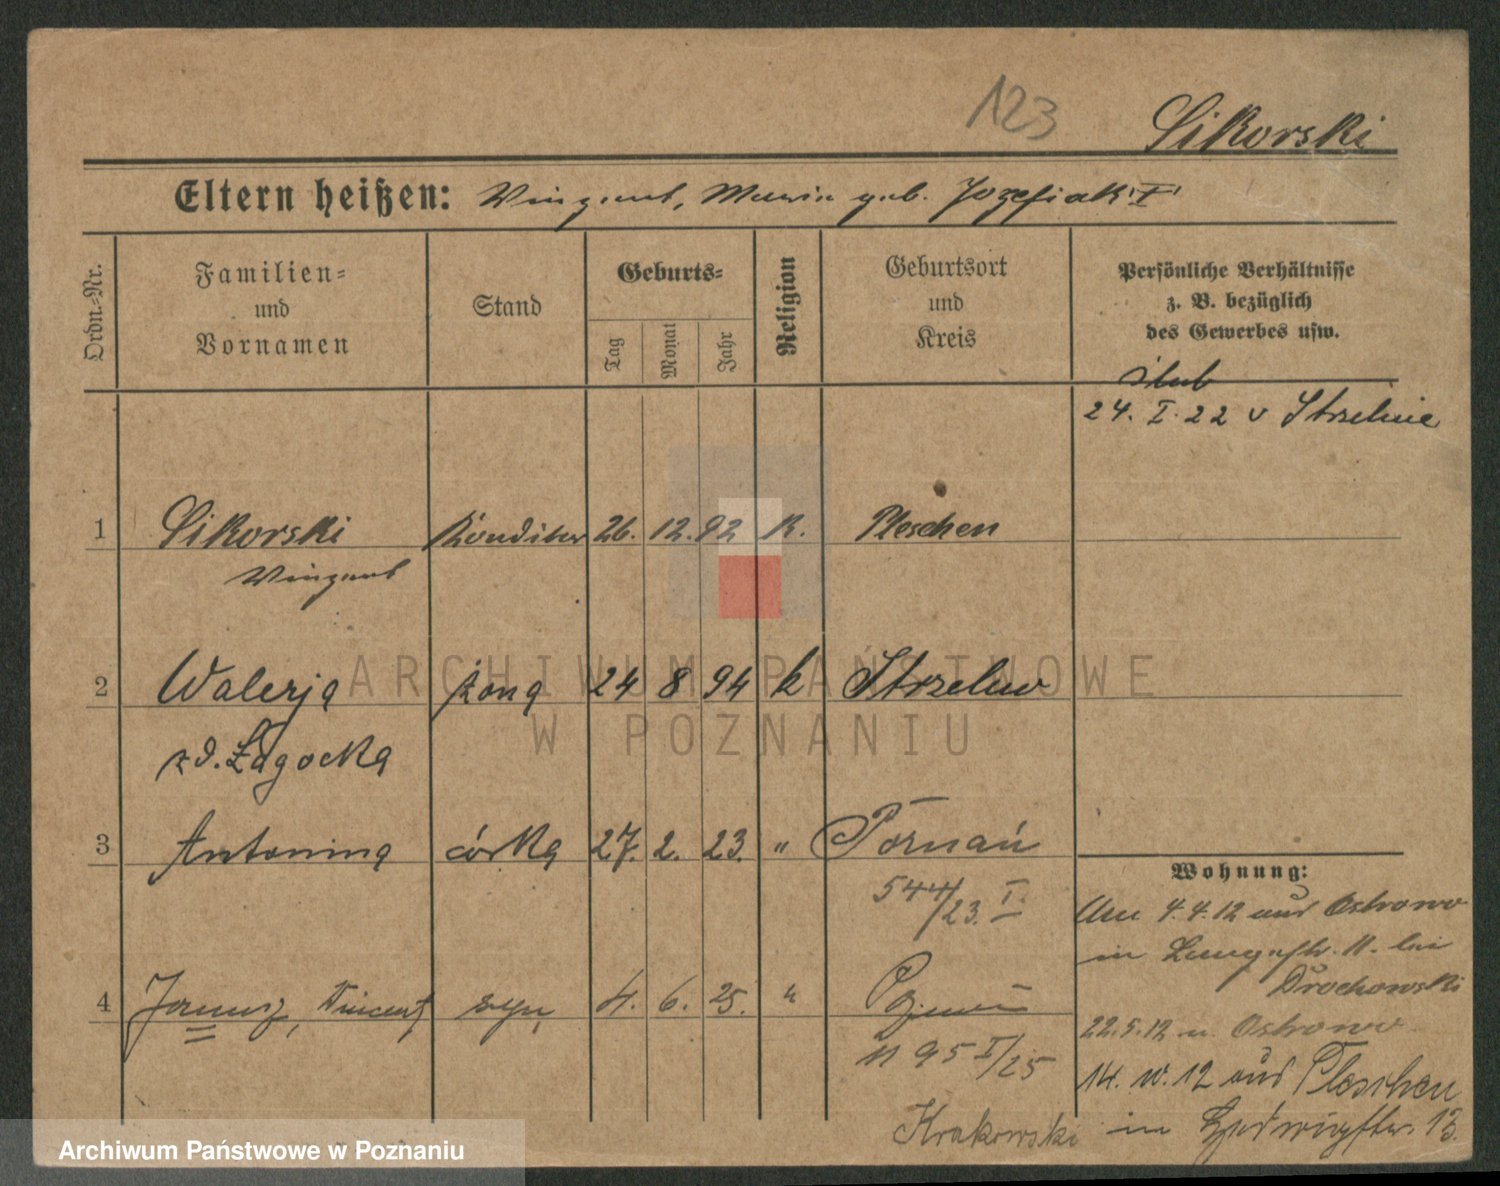 123
Sikorski
Eltern heißen: Vinzent, Maria geb. Jozefiak "I"
Ordn.-Nr.
Familien-
und
Vornamen
Stand
Geburts-
Tag
Monat
Jahr
Religion
Geburtsort
und
Kreis
Persönliche Verhältnisse
z. B. bezüglich
des Gewerbes usw.
ślub
24. I. 22 v Strzelnie
1 Sikorski Konditor 26. 12. 92 K. Pleschen
Vinzent
2 Walerja żona 24 8 94 k Strzelno
zd. Łagocka
3 Antonina córka 27. 2. 23. " Poznań
544/23. I.
Wohnung:
4. 4. 12 aus Ostrowo
in 11. bei
Drochowski
4 Janusz, Vincent syn 4. 6. 25. " Poznań
1195 I/25
22.5.12 n. Ostrowo
14. 12 aus Pleschen
Krakowski in 13.
ARCHIWUM PAŃSTWOWE
W POZNANIU
Archiwum Państwowe w Poznaniu